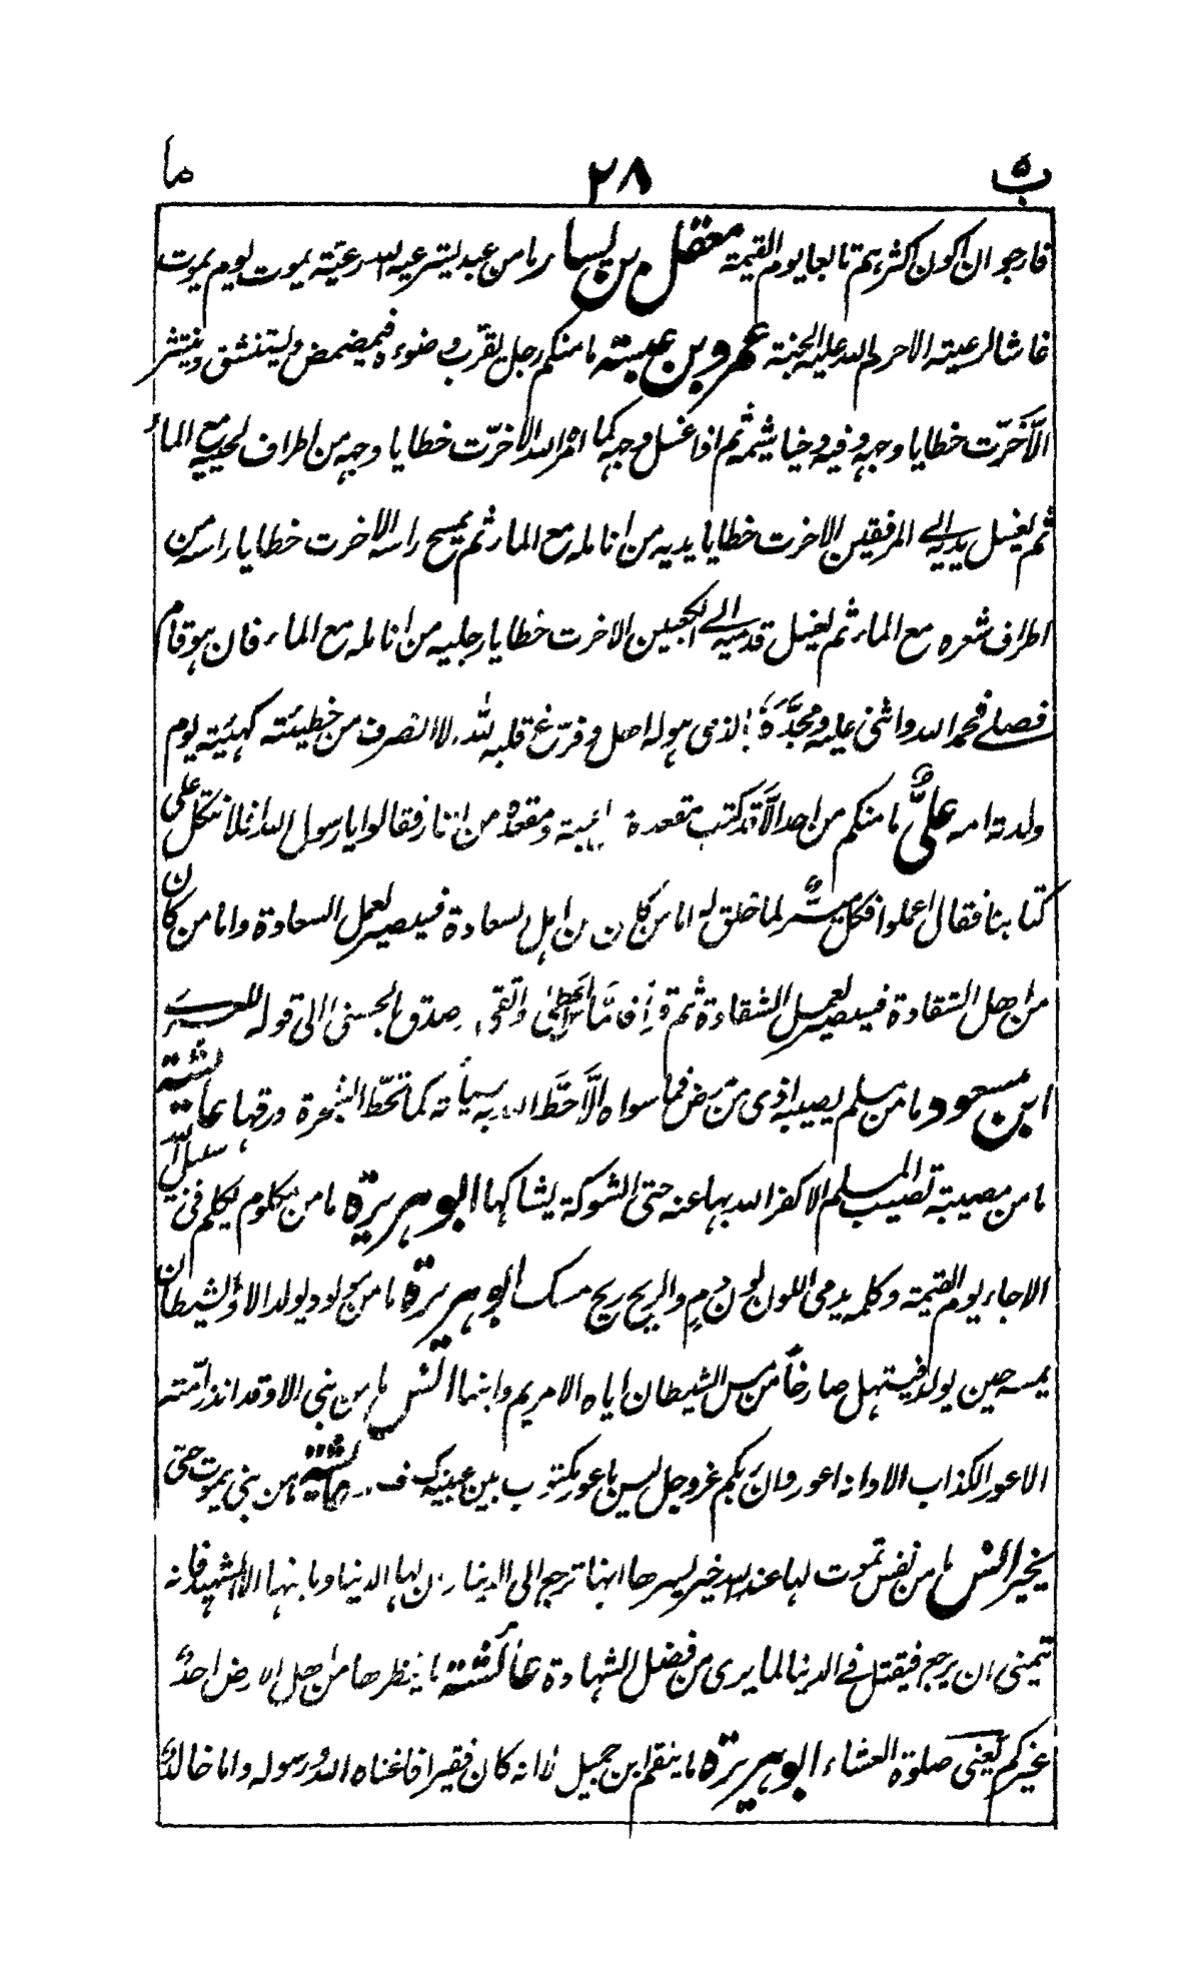 ب ٥ ٢٨ ما
فارجو ان اكون اكثرهم تابعا يوم القيمة معقل بن يسار ما من عبد يسترعيه الله رعيّة يموت يوم يموت
غاشا لرعيته الا حرم الله عليه الجنة عمرو بن عبسة ما منكم رجل يقرّب وضوءه فيمضمض ويستنشق وينتثر
الاّ خرّت خطايا وجهه وفيه وخياشيمه ثم اذا غسل وجهه كما امر الله الا خرّت خطايا وجهه من اطراف لحيته مع الماء
ثم يغسل يديه الى المرفقين الا خرت خطايا يديه من انامله مع الماء ثم يمسح راسه الا خرت خطايا راسه من
اطراف شعره مع الماء ثم يغسل قدميه الى الكعبين الا خرت خطايا رجليه من انامله مع الماء فان هو قام
فصلى فحمد الله واثنى عليه ومجّده بالذى هو له اهل وفرّغ قلبه لله الا انصرف من خطيئته كهيئته يوم
ولدته امه علىٌّ ما منكم من احد الاّ قد كتب مقعده من الجنة ومقعده من النار فقالوا يا رسول الله افلا نتكل على
كتابنا فقال اعملوا فكل ميسّر لما خلق له اما من كان من اهل السعادة فسيصير لعمل السعادة واما من كان
من اهل الشقاوة فسيصير لعمل الشقاوة ثم قرأ فامّا من اعطى واتقى وصدق بالحسنى الى قوله للعسرى
ابن مسعود ما من مسلم يصيبه اذى من مرض فما سواه الاّ حطّ الله به سيأته كما تحطّ الشجرة ورقها عائشة
ما من مصيبة تصيب المسلم الا كفر الله بها عنه حتى الشوكة يشاكها ابو هريرة ما من مكلوم يكلم فى سبيل الله
الا جاء يوم القيمة وكلمه يدمى اللون لون دم والريح ريح مسك ابو هريرة ما من مولود يولد الا والشيطان
يمسه حين يولد فيستهل صارخا من مس الشيطان اياه الا مريم وابنها انس ما من نبى الا وقد انذر امّته
الاعور الكذاب الا وانه اعور وان ربكم عز وجل ليس باعور مكتوب بين عينيه ك ف ر عائشة ما من نبى يموت حتى
يخير انس ما من نفس تموت لها عند الله خير يسرها انها ترجع الى الدنيا وان لها الدنيا وما فيها الا الشهيد فانه
تمنى ان يرجع فيقتل فى الدنيا لما يرى من فضل الشهادة عائشة ما ينتظرها من اهل الارض احدٌ
غيركم يعنى صلوة العشاء ابو هريرة ما ينقم ابن جميل الا انه كان فقيرا فاغناه الله ورسوله واما خالد